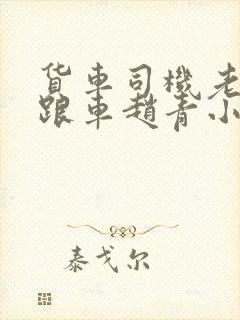 货车司机老
跟车赵青小
泰戈尔